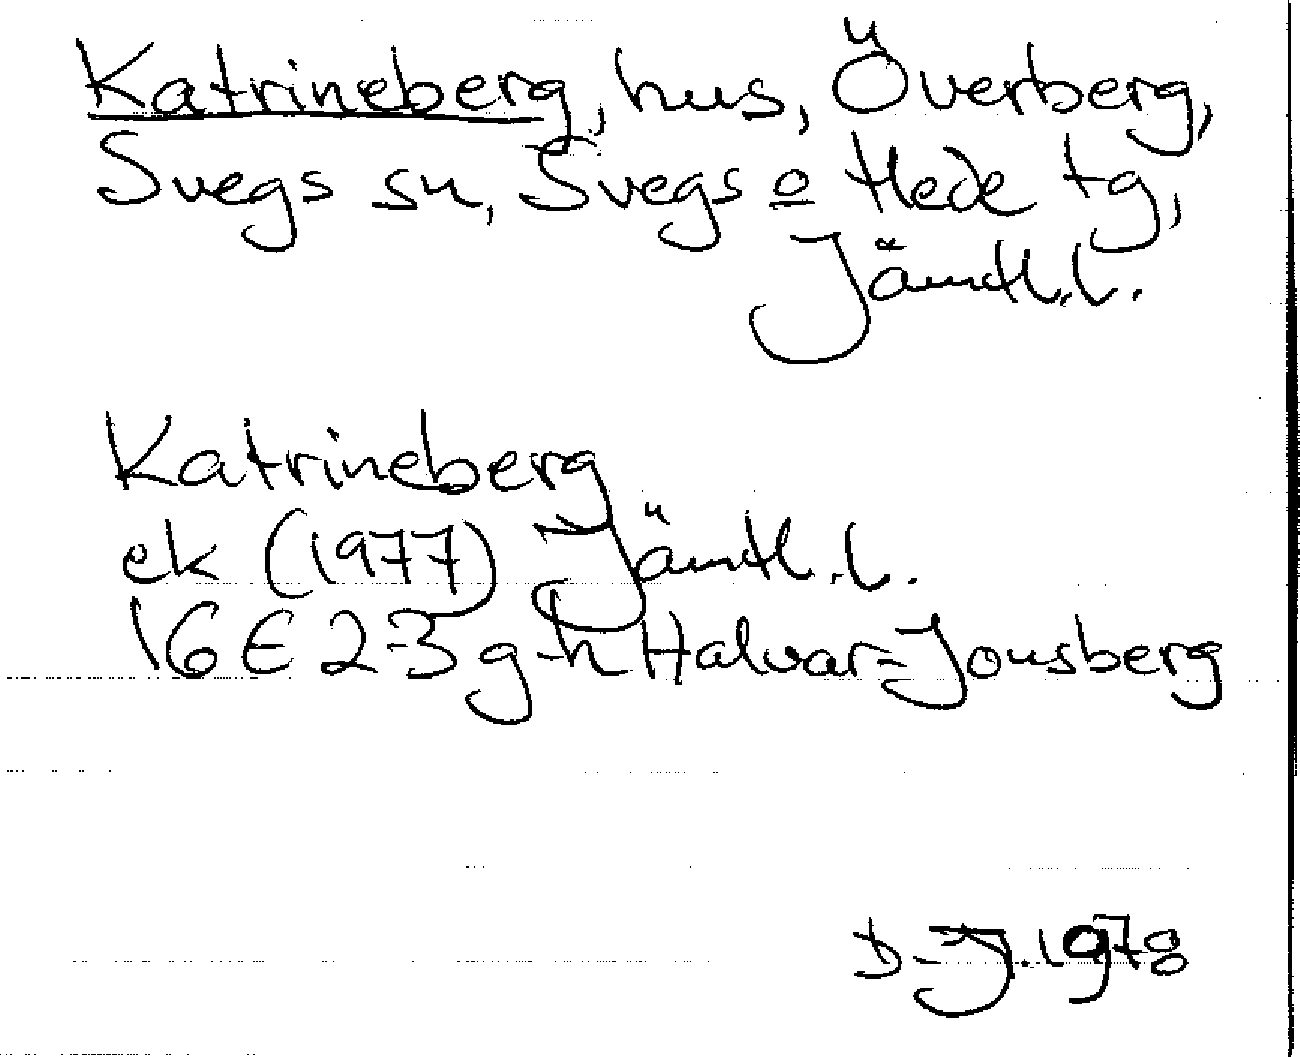 Katrineberg, hus, Överberg,
Svegs sn, Svegs o Hede tg,
Jämtl.l.
Katrineberg
ek (1977) Jämtl.l.
16E 2-3 g-h Halvar=Jonsberg
D-J.1978